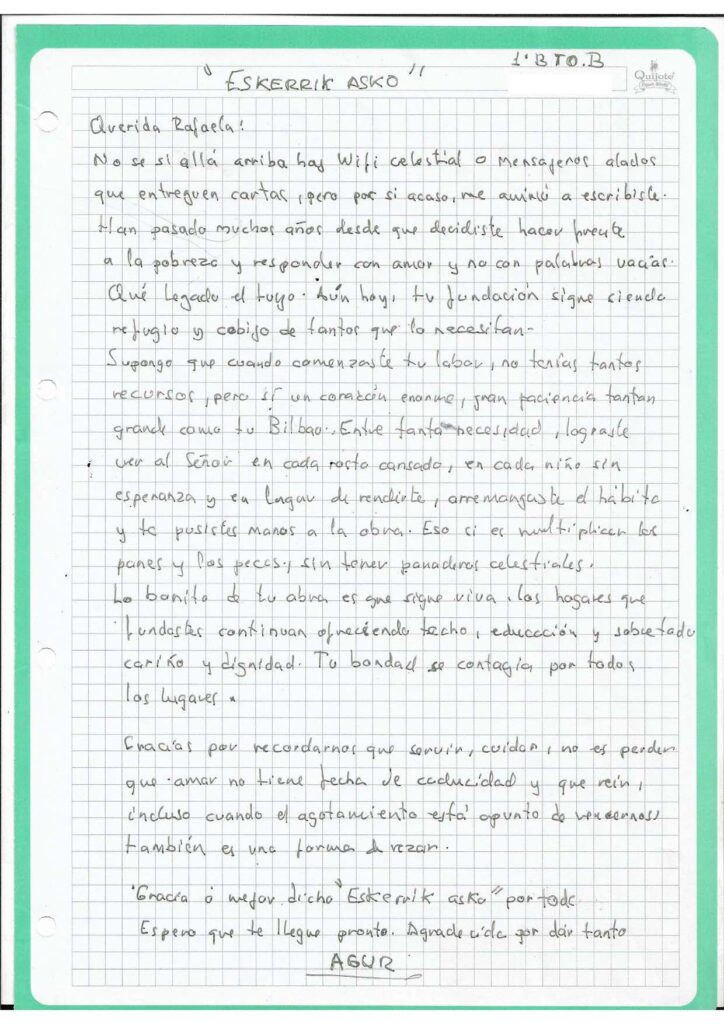 1º BTO.B
"ESKERRIK ASKO"
Quijote
Querida Rafaela:
No se si allá arriba hay Wifi celestial o mensajeros alados
que entreguen cartas, pero por si acaso, me animó a escribiste.
Han pasado muchos años desde que decidiste hacer frente
a la pobreza y responder con amor y no con palabras vacías.
Qué legado el tuyo. Aún hoy, tu fundación sigue ciendo
refugio y cobijo de tantos que lo necesitan-
Supongo que cuando comenzaste tu labor, no tenías tantos
recursos, pero sí un corazón enorme, gran paciencia tantan
grande como tu Bilbao. Entre tanta necesidad, lograste
ver al Señor en cada rosto cansado, en cada niño sin
esperanza y en lugar de rendirte, arremangaste el hábito
y te pusistes manos a la obra. Eso si es multiplicar los
panes y los peces, sin tener panaderos celestiales.
Lo bonito de tu obra es que sigue viva. los hogares que
fundastes continuan ofreciendo techo, educación y sobretodo
cariño y dignidad. Tu bondad se contagia por todos
los lugares.
Gracias por recordarnos que servir, cuidar, no es perder
que amar no tiene fecha de caducidad y que reír,
incluso cuando el agotamiento está apunto de vencernos,
también es una forma de rezar.
Gracia o mejor dicho "Eskerrik asko" por todo
Espero que te llegue pronto. Agradecida por dar tanto
AGUR